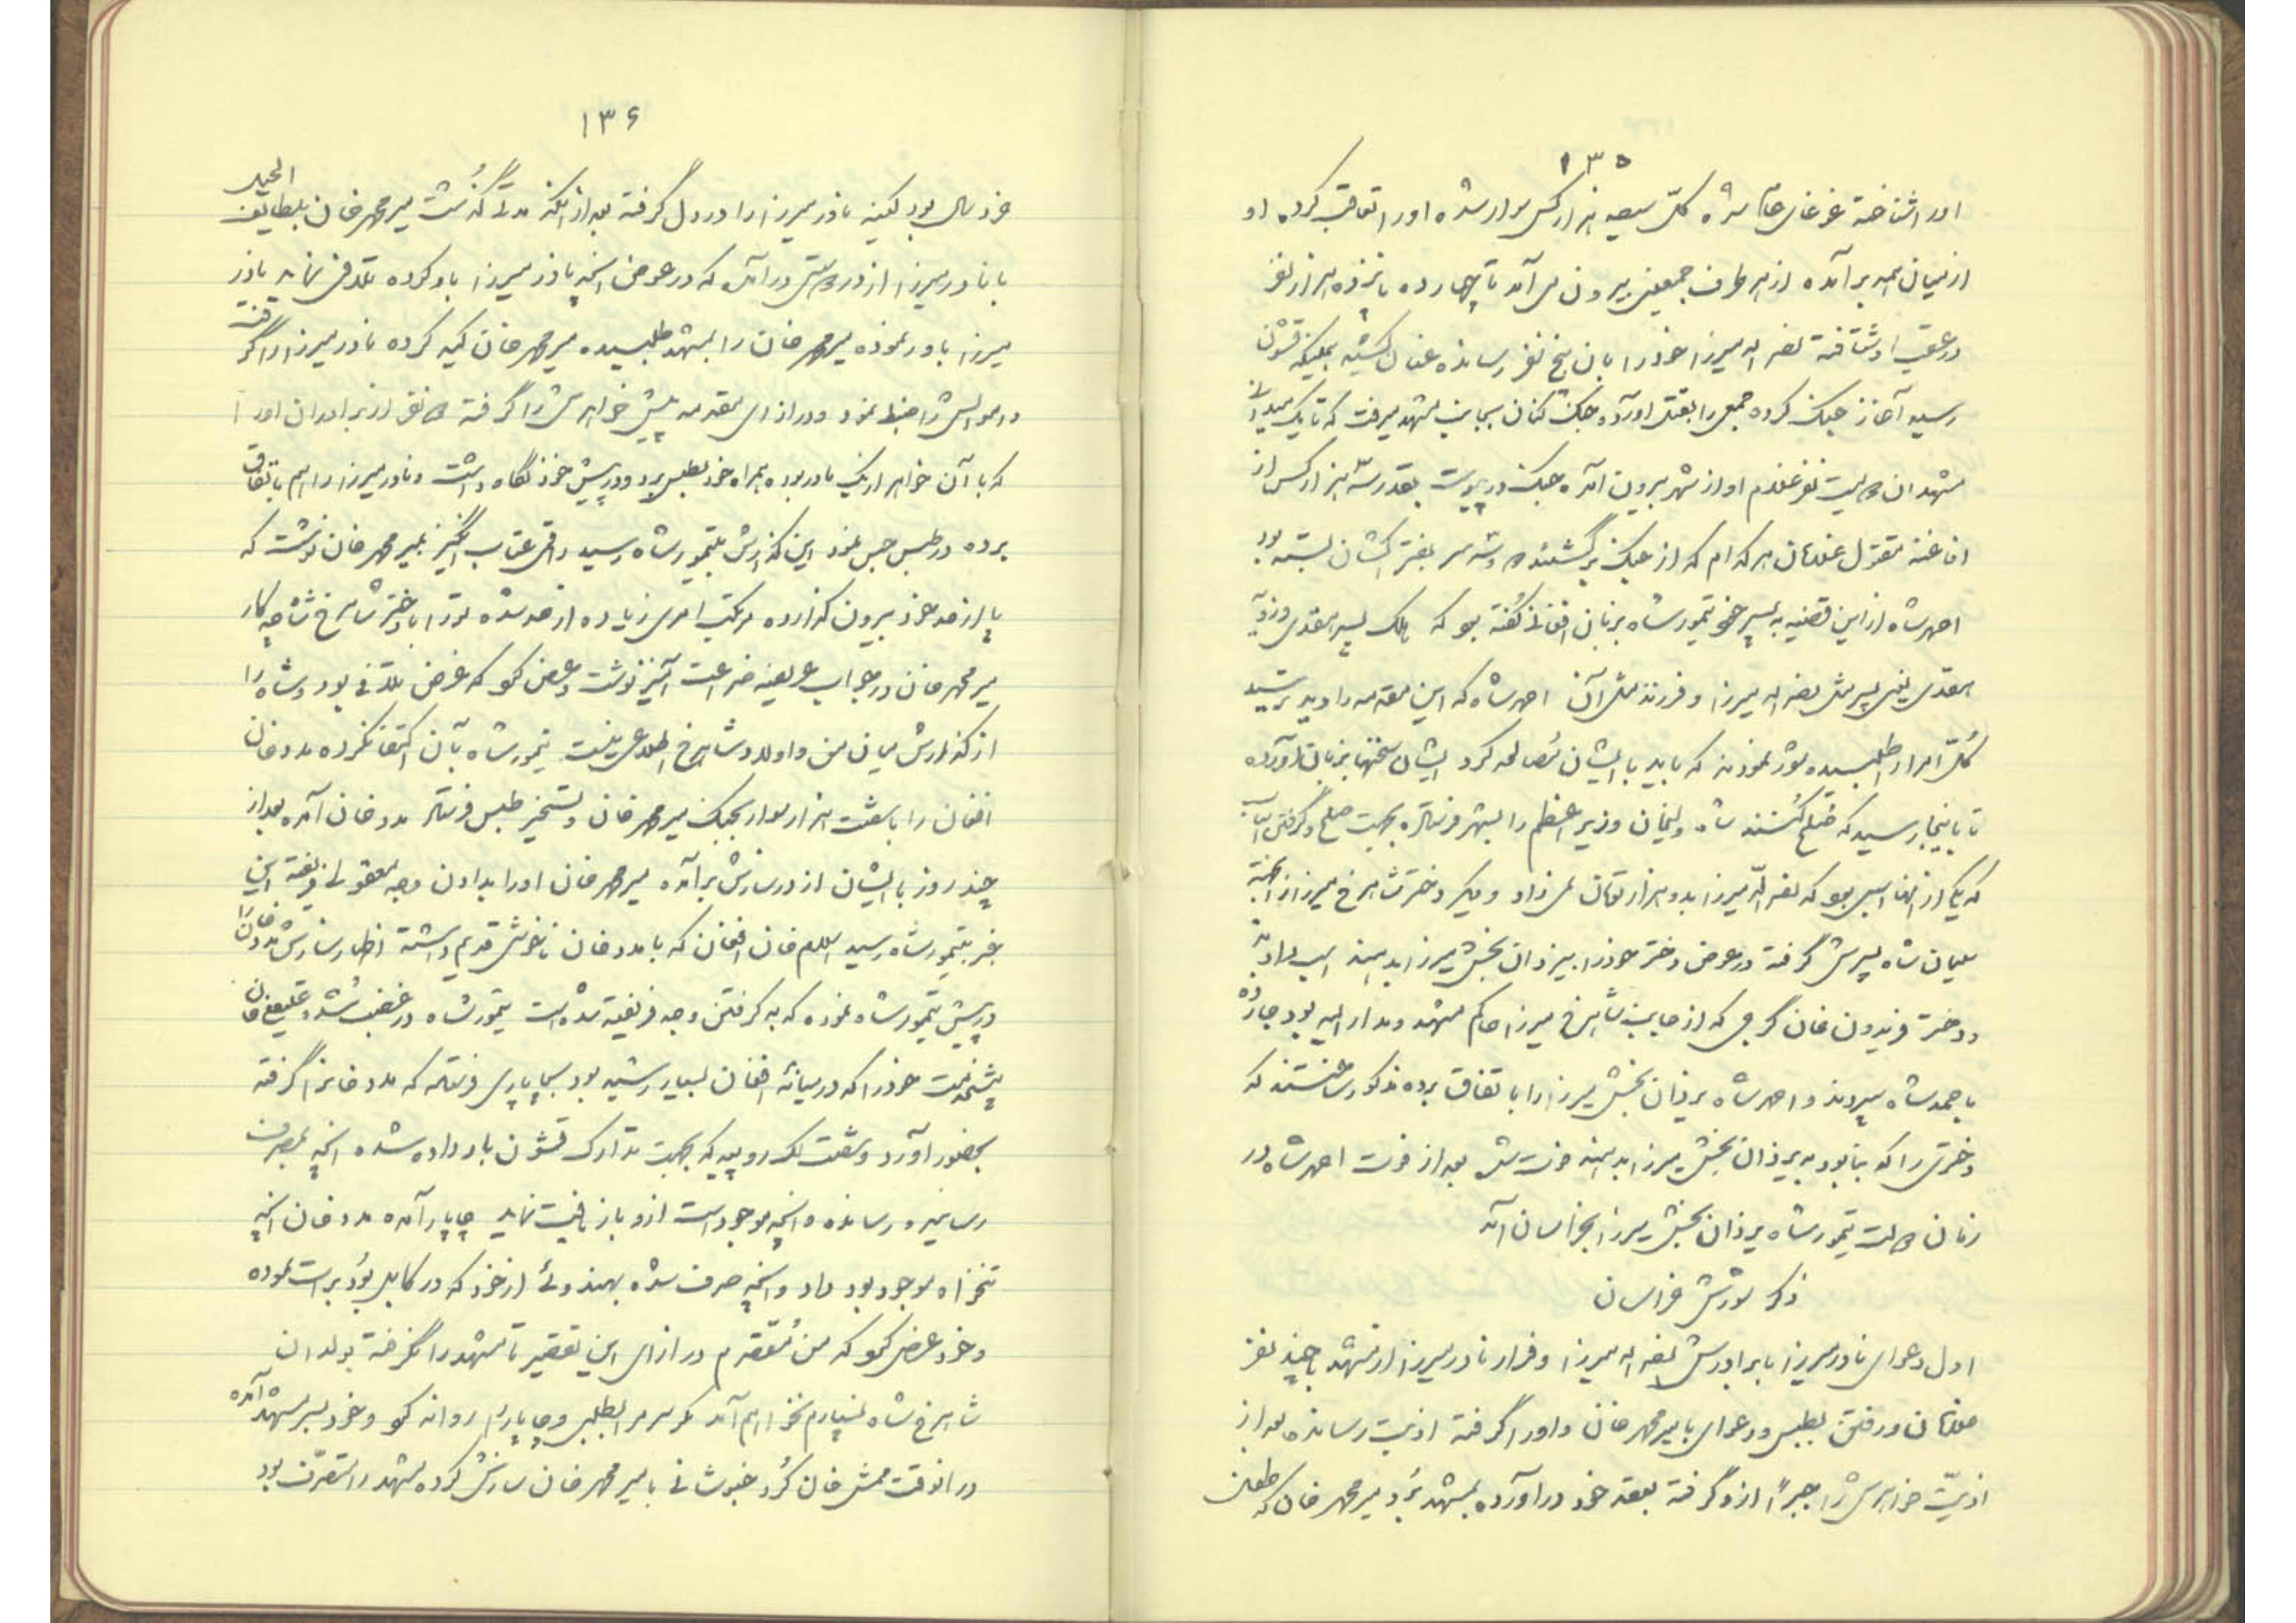 ۱۳۵
اورا شناخته غوغای عام شده کل سیصد هزار کس سوار شده اورا تعاقب کرده او
از میان همه برآمده از هر طرف جمعی بیرون می آمد تا چهارده پانزده هزار نفر
در عقب او شتافته نصرالله میرزا خود را بان پنج نفر رسانده عنان کشیده بملیکه قشون
رسید آغاز جنگ کرده جمعی را بقتل اورده جنگ کنان بجانب مشهد میرفت که تا یک میدانی
مشهد ان دویست نفر غلام او از شهر بیرون آمده جنگ در پیوست بقدر سه هزار کس از
افاغنه مقتول غلامان هر کدام که از جنگ برگشتند دو سه سر بفتراکشان بسته بود
احمد شاه از این قضیه به پسر خود تیمور شاه بزبان افغانی گفته بود که
یعنی پسر مثل نصرالله میرزا و فرزند مثل آن احمد شاه که این مقدمه را دید ترسید
کل امرا را طلبیده شور نمودند که باید با ایشان مصالحه کرد ایشان سخنها بزبان آورده
تا باینجا رسید که صلح کنند شاه ولیخان وزیر اعظم را بشهر فرستاده بجهت صلح و گرفتن اسب
که یکی از انها اسبی بود که نصرالله میرزا بدو هزار تومان نمی داد و دیگر دختر شاهرخ میرزا از
سلیمان شاه پسرش گرفته در عوض دختر خود را بیزدان بخش میرزا بدهند اسب داده
و دختر فریدون خان گرجی که از جانب شاهرخ میرزا حاکم مشهد و مدار الیه بود
باحمد شاه سپردند و احمد شاه یزدان بخش میرزا را باتفاق برده مذکور ساختند که
دختری را که بنا بود به یزدان بخش میرزا بدهند فوت شد بعد از فوت احمد شاه در
زمان دولت تیمور شاه یزدان بخش میرزا بخراسان آمد
ذکر شورش خراسان
اول دعوای نادر میرزا با برادرش نصرالله میرزا و فرار نادر میرزا از مشهد با چند نفر
غلامان و رفتن بطبس و دعوای با میر محمد خان و او را گرفته اذیت رسانده بعد از
اذیت خواهرش را جبراً ازو گرفته بعقد خود در آورده بمشهد برد میر محمد خان که طفل
۱۳۶
خورد سال بود کینه نادر میرزا را در دل گرفته بعد از انکه مدتی گذشت میر محمد خان بلطایف الحیل
با نادر میرزا از در دوستی درآمده که در عوض انچه نادر میرزا باو کرده تلافی نماید نادر
میرزا باور نموده میر محمد خان را بمشهد طلبیده میر محمد خان تکیه کرده نادر میرزا را گرفته
و اموالش را ضبط نمود و در ازای مقدمه پیش خواهرش را گرفته دو نفر از برادران او را
که با آن خواهر از یک مادر بوده همراه خود بطبس برد و در پیش خود نگاه داشت و نادر میرزا را هم باتفاق
برده در طبس حبس نمود این گذارش بتیمور شاه رسید رقمی عتاب انگیز بمیر محمد خان نوشت که
پا از حد خود بیرون گذارده مرتکب امری زیاده از حد شده تو را با دختر شاهرخ شاه چکار
میر محمد خان در جواب عریضه ضراعت آمیز نوشت و عرض نمود که غرض تلافی بود و شاه را
از گذارش میان من و اولاد شاهرخ اطلاعی نیست تیمور شاه بآن اکتفا نکرده مدد خان
افغان را با هشت هزار سوار بجنگ میر محمد خان و تسخیر طبس فرستاد مدد خان آمده بعد از
چند روز با ایشان از در سازش برآمده میر محمد خان او را بدادن وجه معقولی فریفته این
خبر بتیمور شاه رسید اسلام خان افغان که با مدد خان ناخوشی قدیم داشته اظهار سازش مدد خان را
در پیش تیمور شاه نموده که به گرفتن وجه فریفته شده است تیمور شاه در غضب شده قلیچ خان
پیشخدمت خود را که در میانه افغان بسیار رشید بود بچاپاری فرستاد که مدد خان را گرفته
بحضور آورد و هشت لک روپیه که بجهت تدارک قشون باو داده شده انچه بمصرف
رسانیده رسانده و انچه موجود است ازو باز یافت نماید چاپار آمده مدد خان انچه
تنخواه موجود بود داد و انچه صرف شده بهندوئی از خود که در کابل بود برات نموده
و خود عرض نمود که من مقصرم در ازای این تقصیر تا مشهد را نگرفته بولدان
شاهرخ شاه نسپارم نخواهم آمد مگر سر مرا بطلبی و چاپار را روانه نمود و خود بسر مشهد آمده
در انوقت ممش خان کرد خبوشانی با میر محمد خان سازش کرده مشهد را متصرف بود